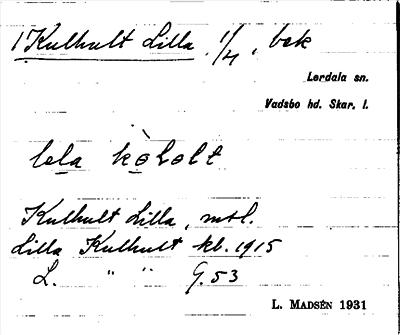 1 Kulhult Lilla, 1/4, bek
Lerdala sn.
Vadsbo hd. Skar. l.
lela kòlolt
Kulhult Lilla, mtl.
Lilla Kulhult kb. 1915
L. " " G. 53
L. MADSÉN 1931